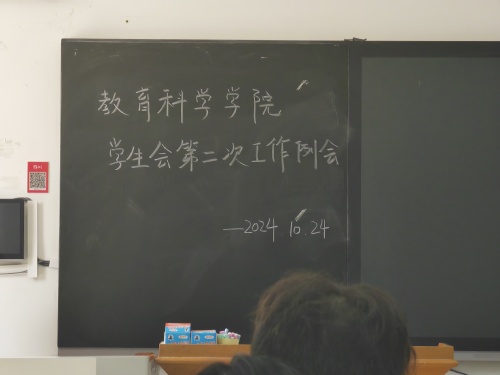 教育科学学院
学生会第二次工作例会
—2024.10.24